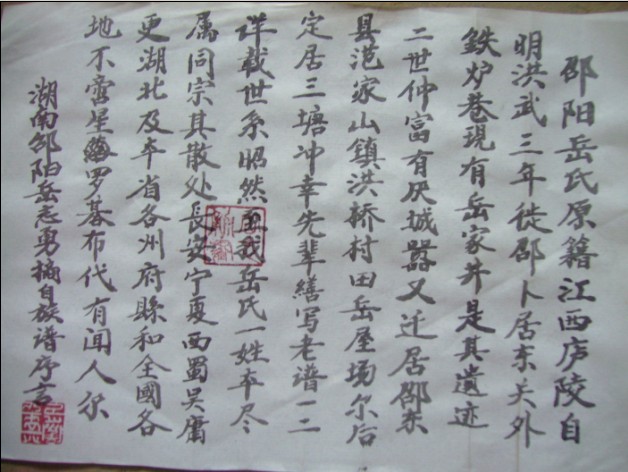 邵阳岳氏原籍江西庐陵自
明洪武三年徙邵卜居东关外
鉄炉巷現有岳家井是其遺迹
二世仲富有厌城嚣又迁居邵东
县范家山镇洪桥村田岳屋场尔后
定居三塘冲幸先辈缮写老谱一二
详载世系昭然我岳氏一姓本尽
属同宗其散处長安宁夏西蜀吴庸
更湖北及本省各州府縣和全國各
地不啻星罗棊布代有闻人尔
湖南邵阳岳志勇摘自族谱序言